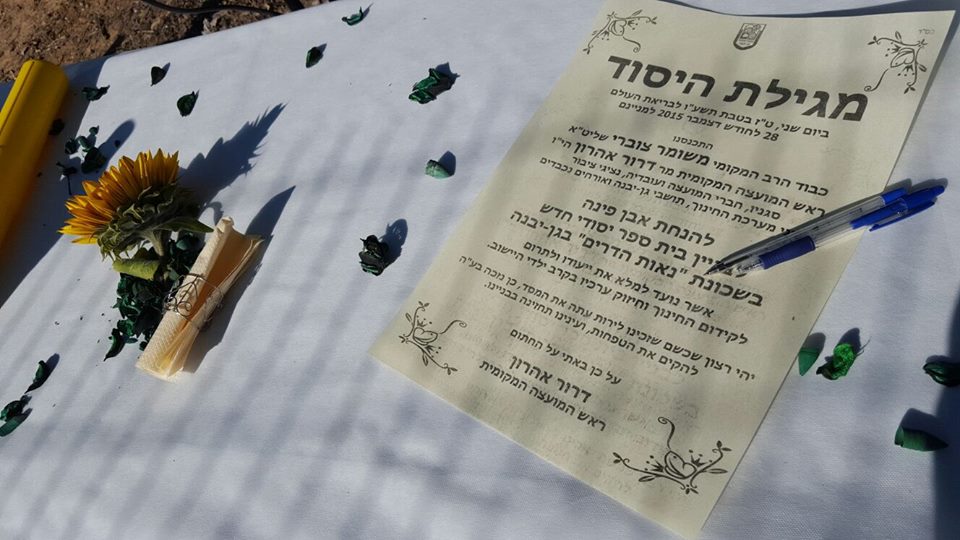 בס״ד
מגילת היסוד
ביום שני, ט״ז בטבת תשע״ו לבריאת העולם
28 לחודש דצמבר 2015 למניינם
התכנסנו
כבוד הרב המקומי משומר צוברי שליט״א
ראש המועצה המקומית מר דרור אהרון הי״ו
סגניו, חברי המועצה ועובדיה, נציגי ציבור
מערכת החינוך, תושבי גן-יבנה ואורחים נכבדים
להנחת אבן פינה
בית ספר יסודי חדש
בשכונת ״נאות הדרים״ בגן-יבנה
אשר נועד למלא את ייעודו ולתרום
לקידום החינוך וחיזוק ערכיו בקרב ילדי היישוב.
יהי רצון שכשם שזכינו לירות עתה את המסד, כן נזכה בע״ה
להקים את הטפחות, ועינינו תחזינה בבניינו.
על כן באתי על החתום
דרור אהרון
ראש המועצה המקומית